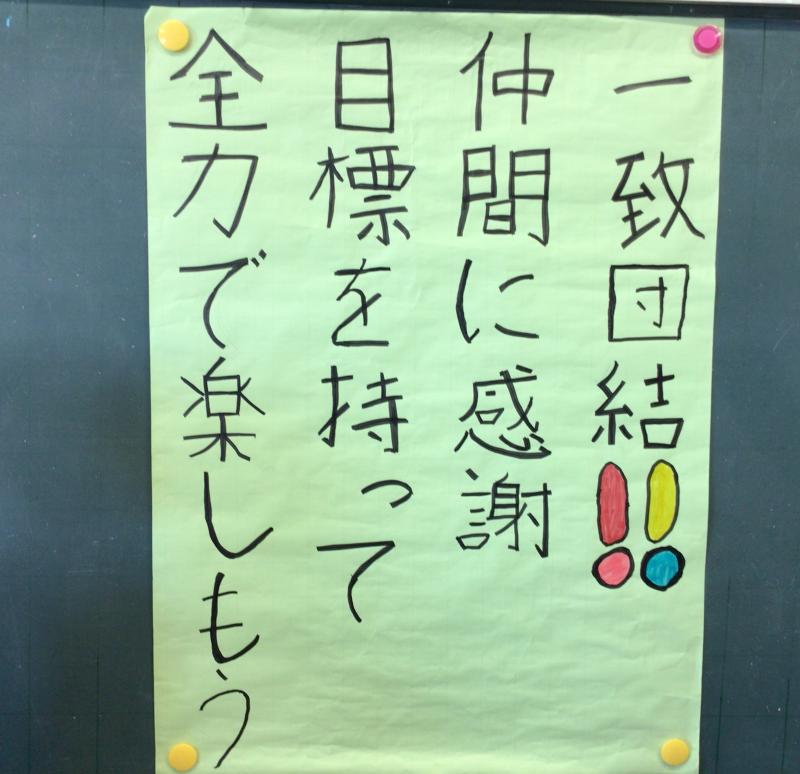 一致団結!!
仲間に感謝
目標を持って
全力で楽しもう